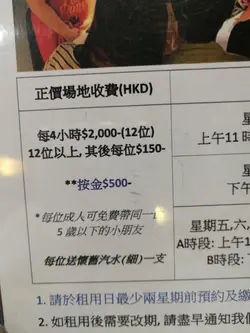 正價場地收費(HKD)
每4小時$2,000-(12位)
12位以上, 其後每位$150-
**按金$500-
*每位成人可免費帶同一
5 歲以下的小朋友
每位送懷舊汽水(細)一支
星
上午11時
星
下午
星期五,六,
A時段: 上午1
B時段: 下
1. 請於租用日最少兩星期前預約及繳
2. 如租用後需要改期, 請盡早通知我們